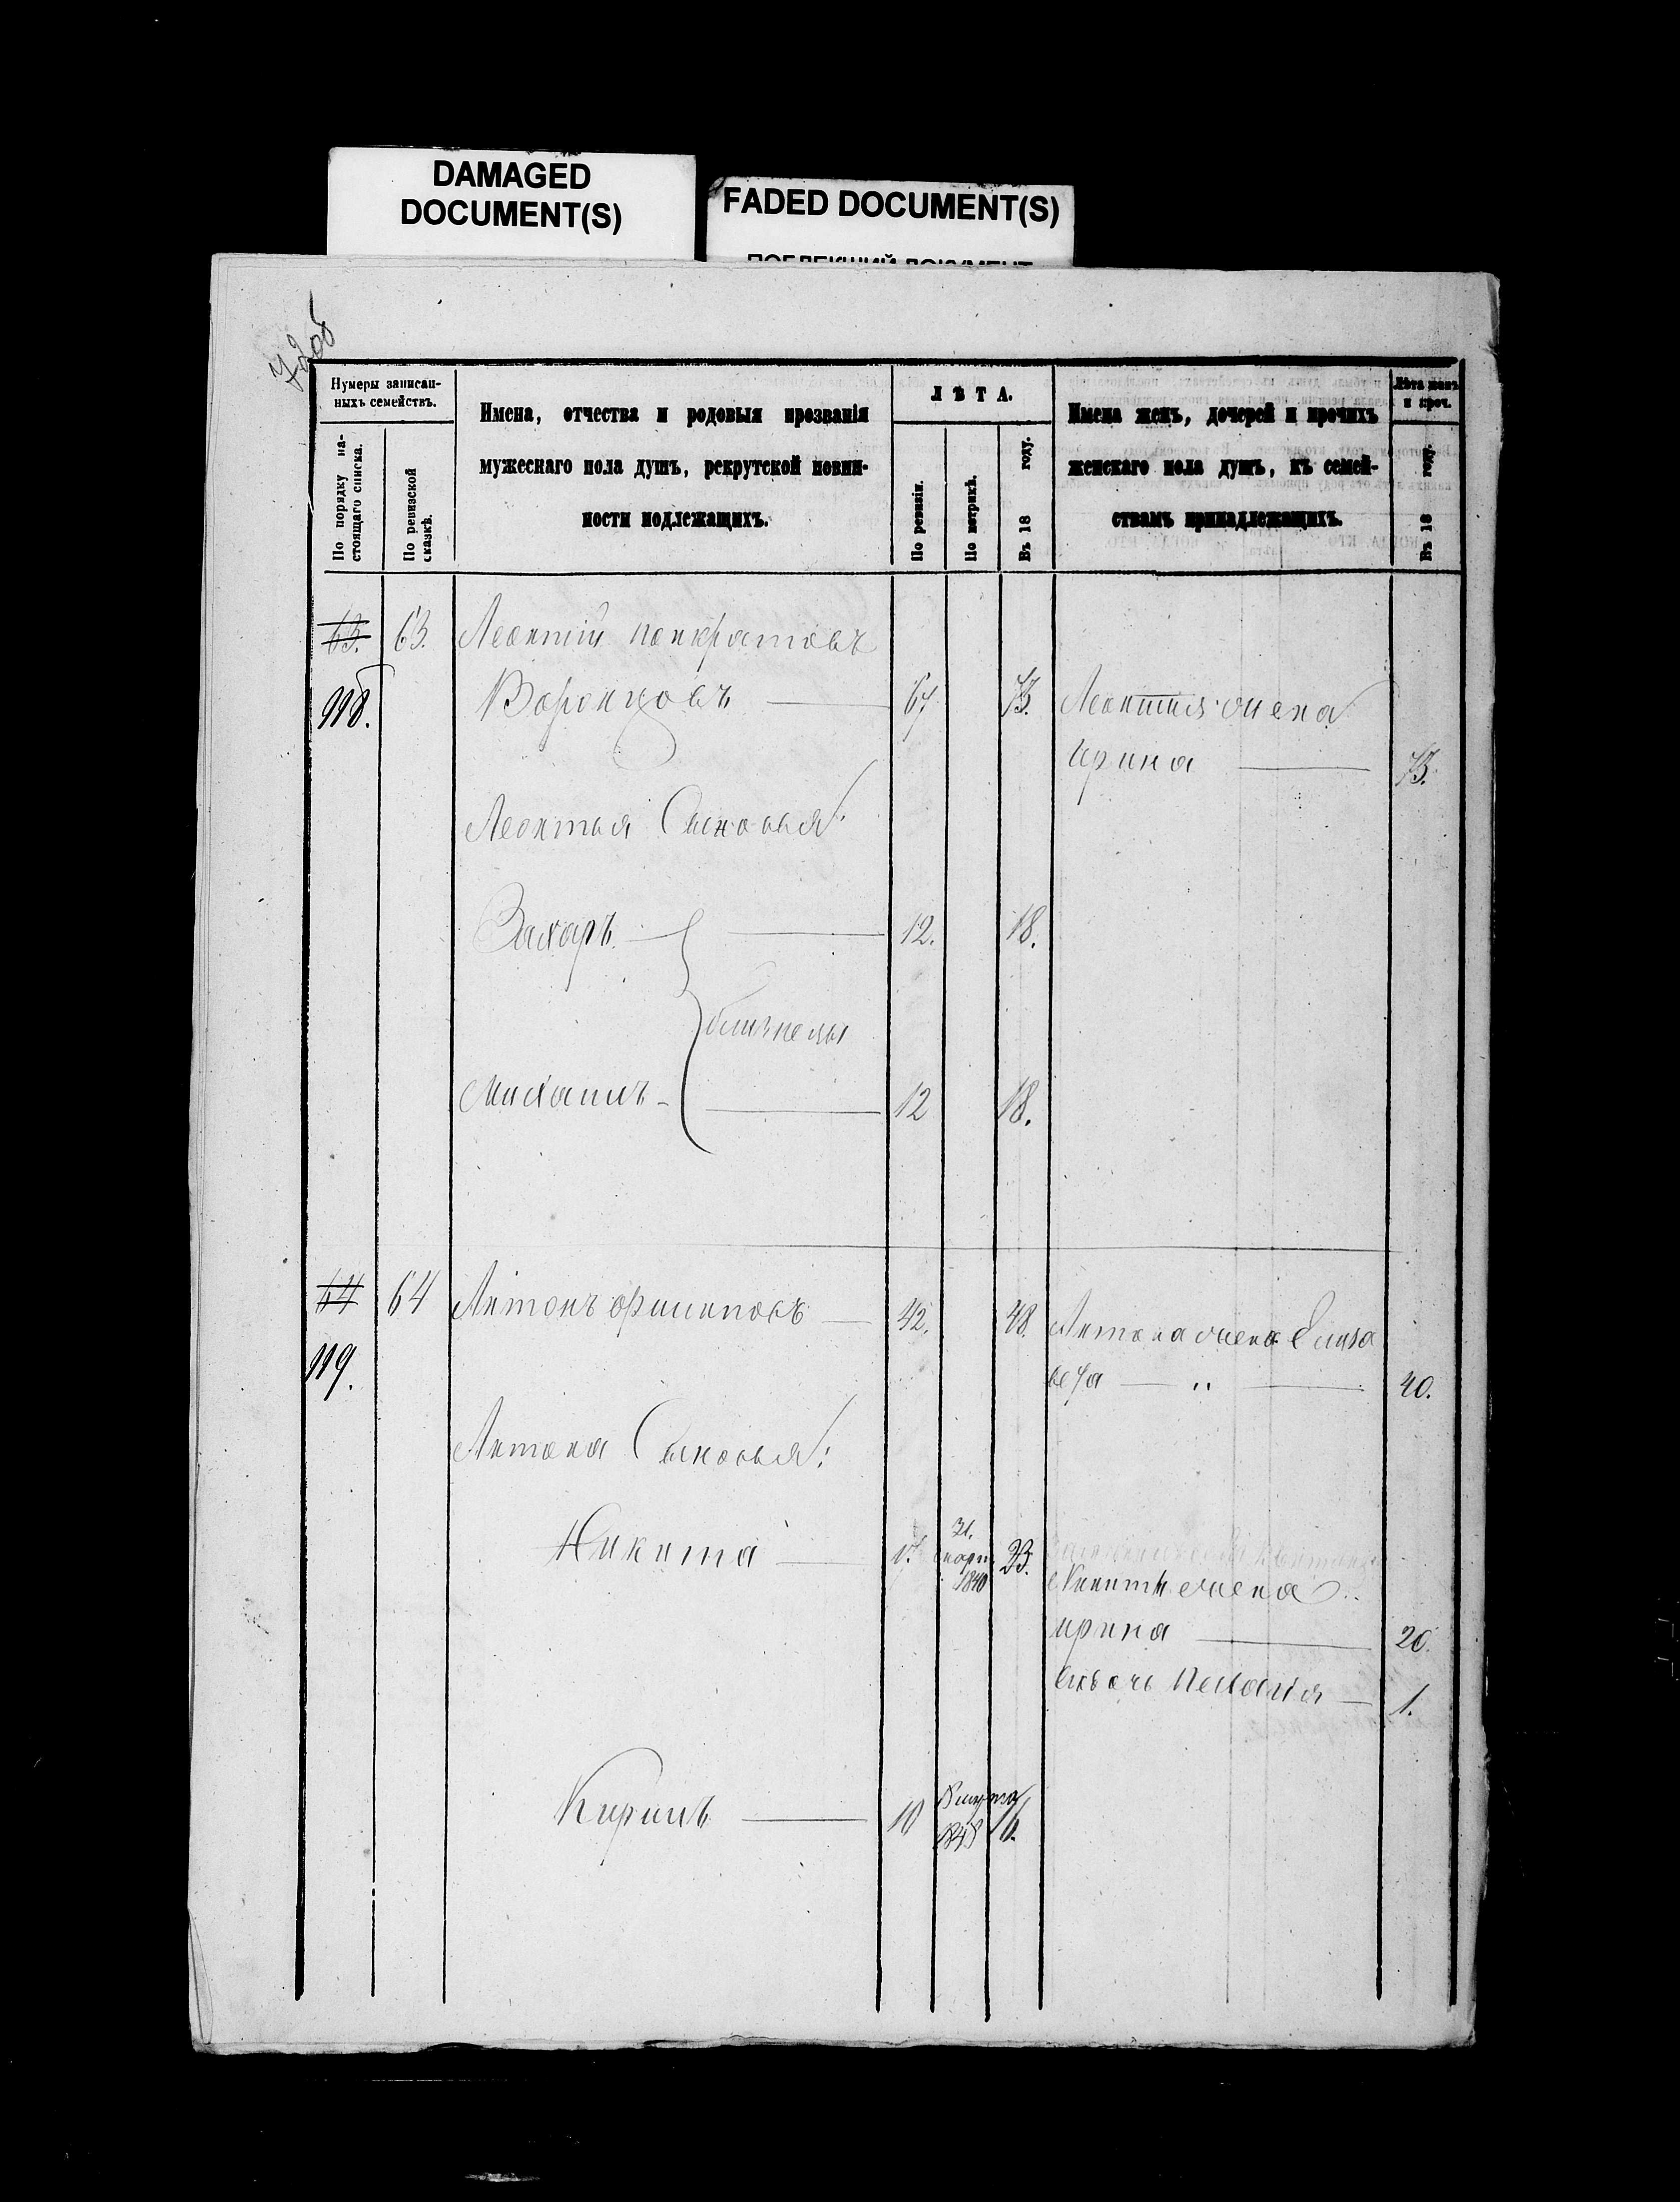 DAMAGED
DOCUMENT(S)
FADED DOCUMENT(S)
ПОБЛЕКШИЙ ДОКУМЕНТ
72об
Нумеры записан-
ныхъ семействъ.
По порядку на-
стоящаго списка.
По ревизской
сказкѣ.
Имена, отчества и родовыя прозванія
мужескаго пола душъ, рекрутской повин-
ности подлежащихъ.
ЛѢТА.
По ревизіи.
По метрикѣ.
Въ 18 году.
Имена женъ, дочерей и прочихъ
женскаго пола душъ, къ семей-
ствамъ принадлежащихъ.
Лѣта женъ
и проч.
Въ 18 году.
63. 63. Леонтій Панкратовъ
118. Воронцовъ 67 73. Леонтия жена
Ирина 73.
Леонтья Сыновья:
Захаръ 12. 18.
близнецы
Михаилъ 12 18.
64 64 Антонъ Филиповъ 42. 48. Антона жена Елиза
119. вефа 40.
Антона Сыновья:
Никита 17. 31. март. 1840 23.
Никиты жена
Ирина 20.
дочь Пелагия 1.
Кирилъ 10 16.